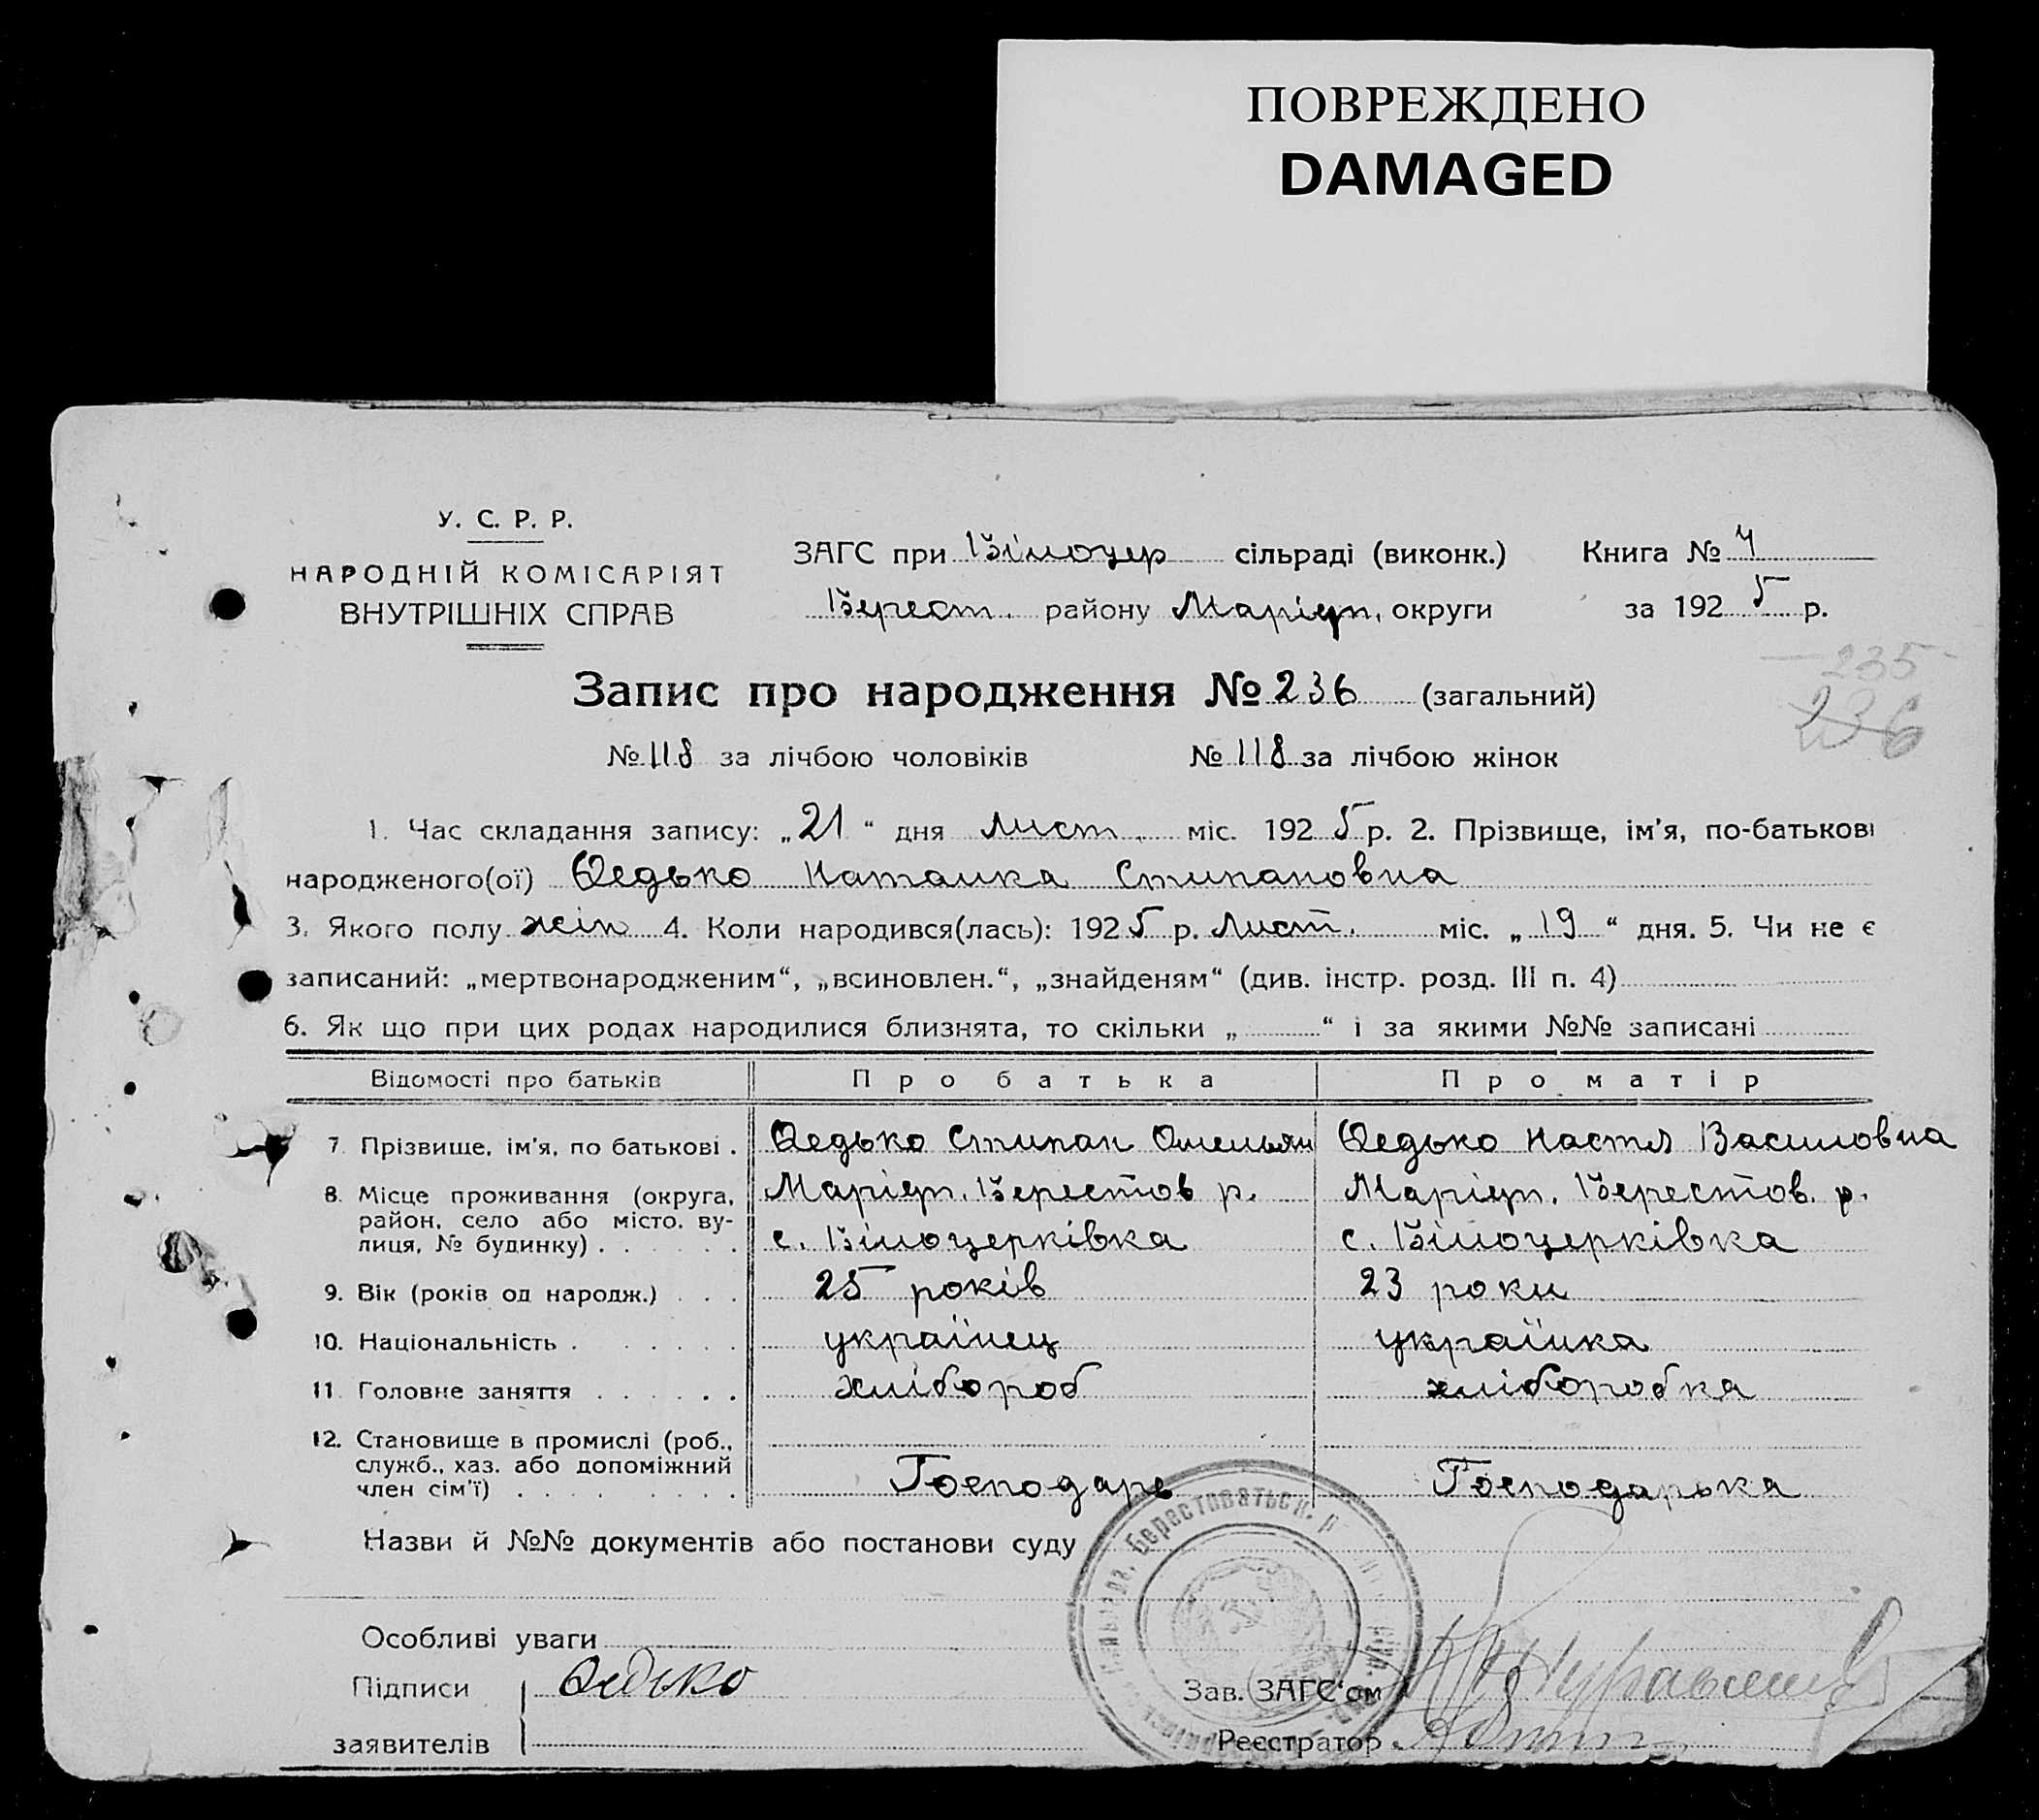 ПОВРЕЖДЕНО
DAMAGED
У. С. Р. Р.
НАРОДНІЙ КОМІСАРІЯТ
ВНУТРІШНІХ СПРАВ
ЗАГС при Білоцер сільраді (виконк.) Книга № 4
Берест. району Маріуп. округи за 1925 р.
235
236
Запис про народження № 236 (загальний)
№ 118 за лічбою чоловіків № 118 за лічбою жінок
1. Час складання запису: „21“ дня Лист. міс. 1925 р. 2. Прізвище, ім'я, по-батькові
народженого(ої) Федько Наталка Стипановна
3. Якого полу жін 4. Коли народився(лась): 1925 р. Лист. міс. „19“ дня. 5. Чи не є
записаний: „мертвонародженим“, „всиновлен.“, „знайденям“ (див. інстр. розд. III п. 4)
6. Як що при цих родах народилися близнята, то скільки „ “ і за якими №№ записані
Відомості про батьків Про батька Про матір
7. Прізвище, ім'я, по батькові . Федько Стипан Омельян Федько Настя Василовна
8. Місце проживання (округа, район, село або місто, ву-
лиця, № будинку) . Маріуп. Берестов р. Маріуп. Берестов. р.
с. Білоцерківка с. Білоцерківка
9. Вік (років од народж.) . 25 років 23 роки
10. Національність . українец українка
11. Головне заняття . хлібороб хліборобка
12. Становище в промислі (роб.,
служб., хаз. або допоміжний
член сім'ї) . Господарь Господарька
Назви й №№ документів або постанови суду
Берестоватьск.
Особливі уваги
Підписи Федько Зав. ЗАГС'ом
заявителів Реєстратор